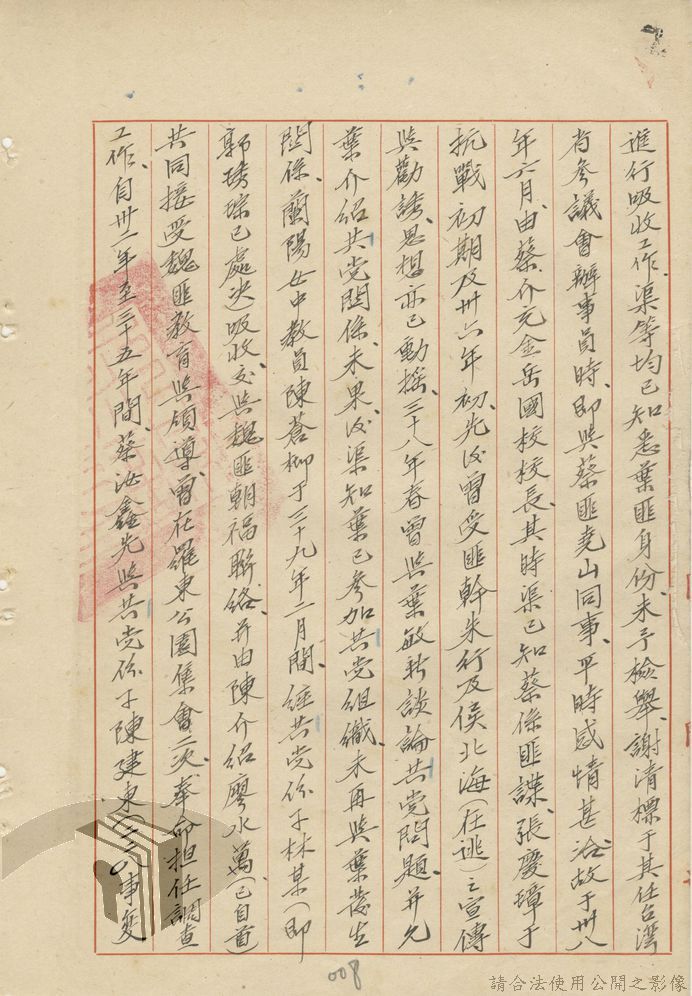 進行吸收工作、渠等均已知悉葉匪身份、未予檢舉、謝清標于其任台灣
省參議會辦事員時、即與蔡匪堯山同事、平時感情甚洽、故于卅八
年六月、由蔡介充金岳國校校長、其時渠已知蔡係匪諜、張慶璋于
抗戰初期及卅六年初、先後曾受匪幹朱行及侯北海(在逃)之宣傳
與勸誘、思想亦已動搖、三十八年春曾與葉敏新談論共党問題、并允
葉介紹共党関係、未果、後渠知葉已參加共党組織、未再與葉發生
関係、蘭陽女中教員陳蒼柳于三十九年二月間、經共党份子林某(即
郭琇琮已處決)吸收、交與魏匪朝福聯絡、并由陳介紹廖水萬(已自首)
共同接受魏匪教育與領導、曾在羅東公園集會二次、奉命担任調查
工作、自卅二年至三十五年間、蔡汝鑫先與共党份子陳建東(二二八事變
008
請合法使用公開之影像